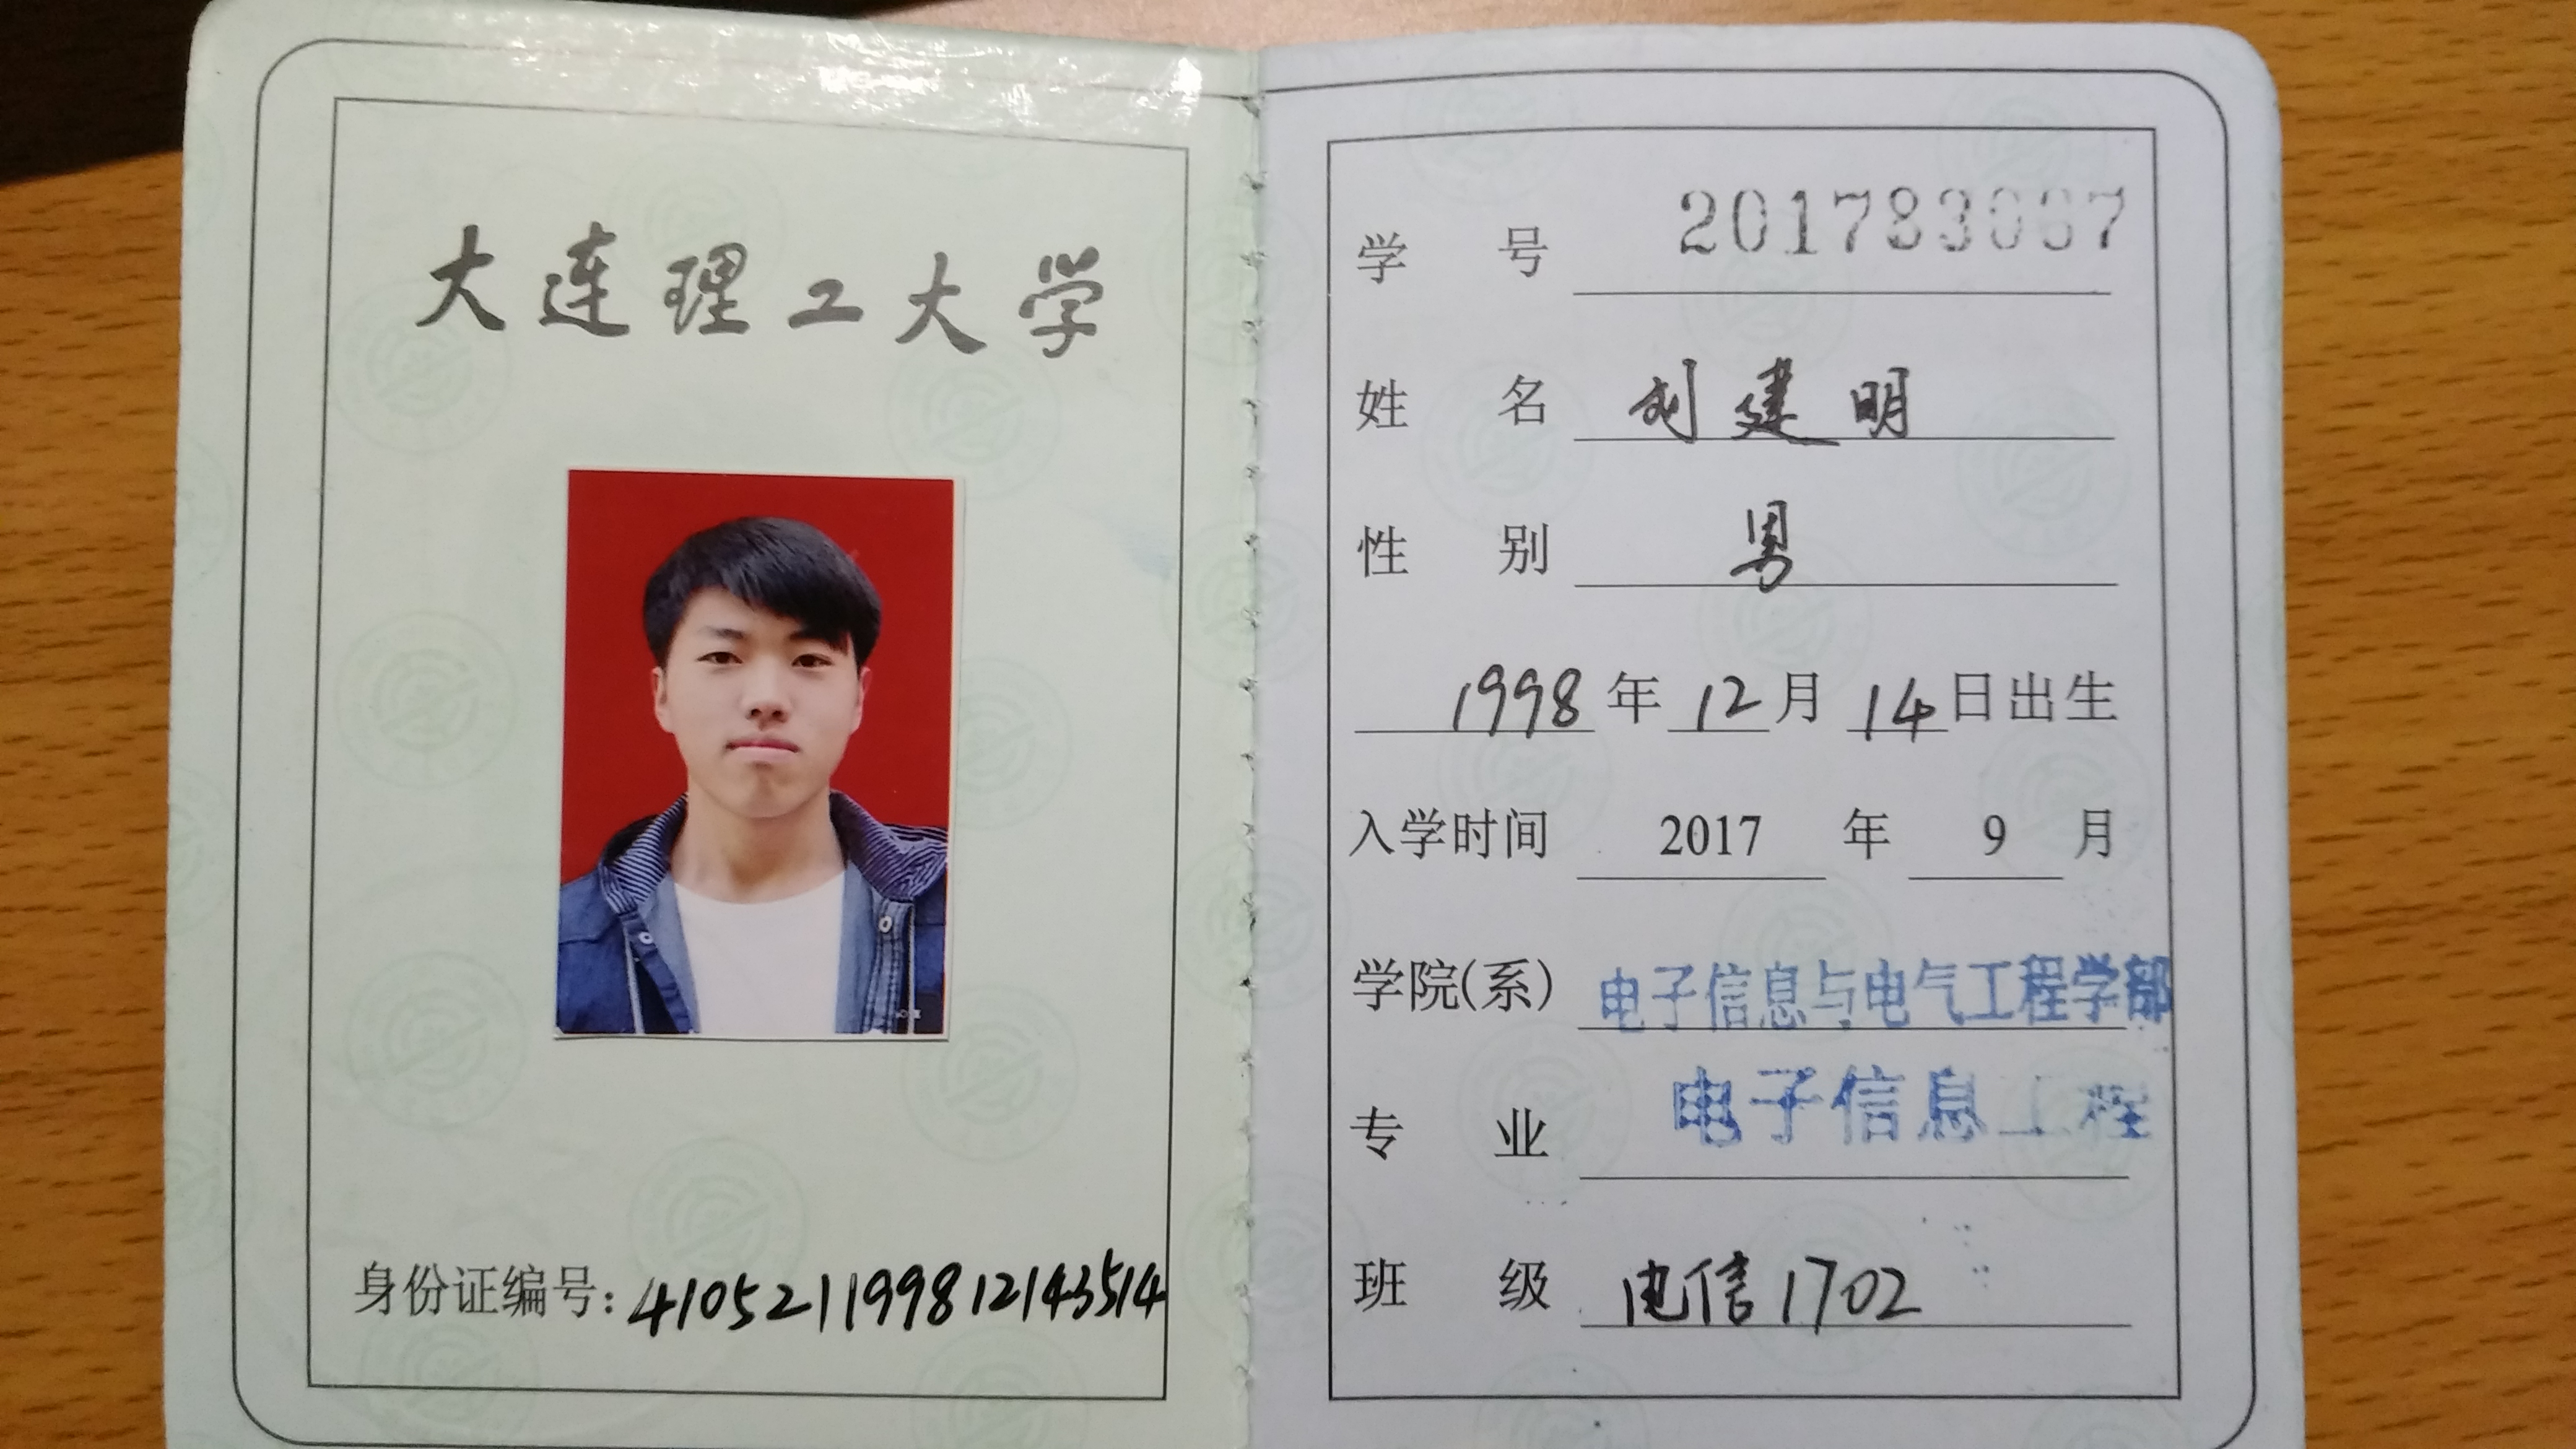 大连理工大学
身份证编号：410521199812143514
学号 201783067
姓名 刘建明
性别 男
1998年12月14日出生
入学时间 2017年9月
学院(系) 电子信息与电气工程学部
专业 电子信息工程
班级 电信1702